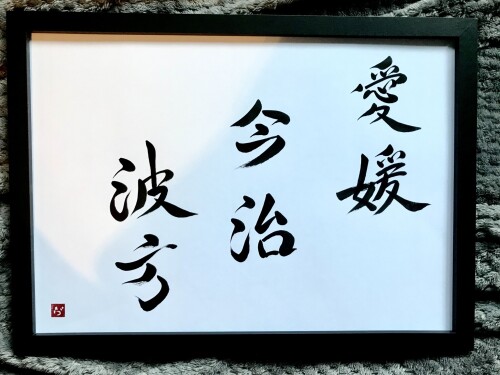 愛媛
今治
波方